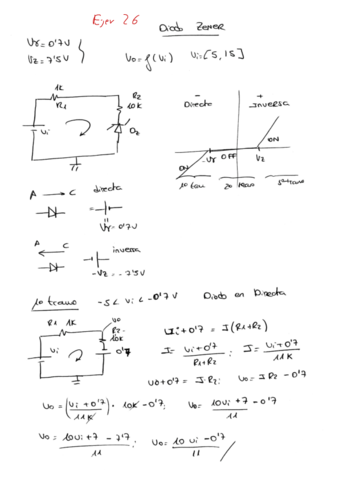 Ejer 26
Diodo Zener
Vγ=0'7V
Vz=7'5V
Vo=f(Vi) Vi=[5,15]
1K
R1
R2
10K
Vi
Dz
- +
Directa Inversa
ON -Vγ OFF Vz ON
1º tramo 2º tramo 3º tramo
A → C directa
Vγ=0'7V
A ← C inversa
-Vz=-7'5V
1º tramo -5<Vi<-0'7V Diodo en Directa
R1 1K
Vo
R2
10K
Vi
0'7
Vi+0'7=I(R1+R2)
I=Vi+0'7/R1+R2; I=Vi+0'7/11K
Vo+0'7=I·R2; Vo=I·R2-0'7
Vo=(Vi+0'7/11K)·10K-0'7; Vo=10Vi+7/11-0'7
Vo=10Vi+7-7'7/11; Vo=10Vi-0'7/11